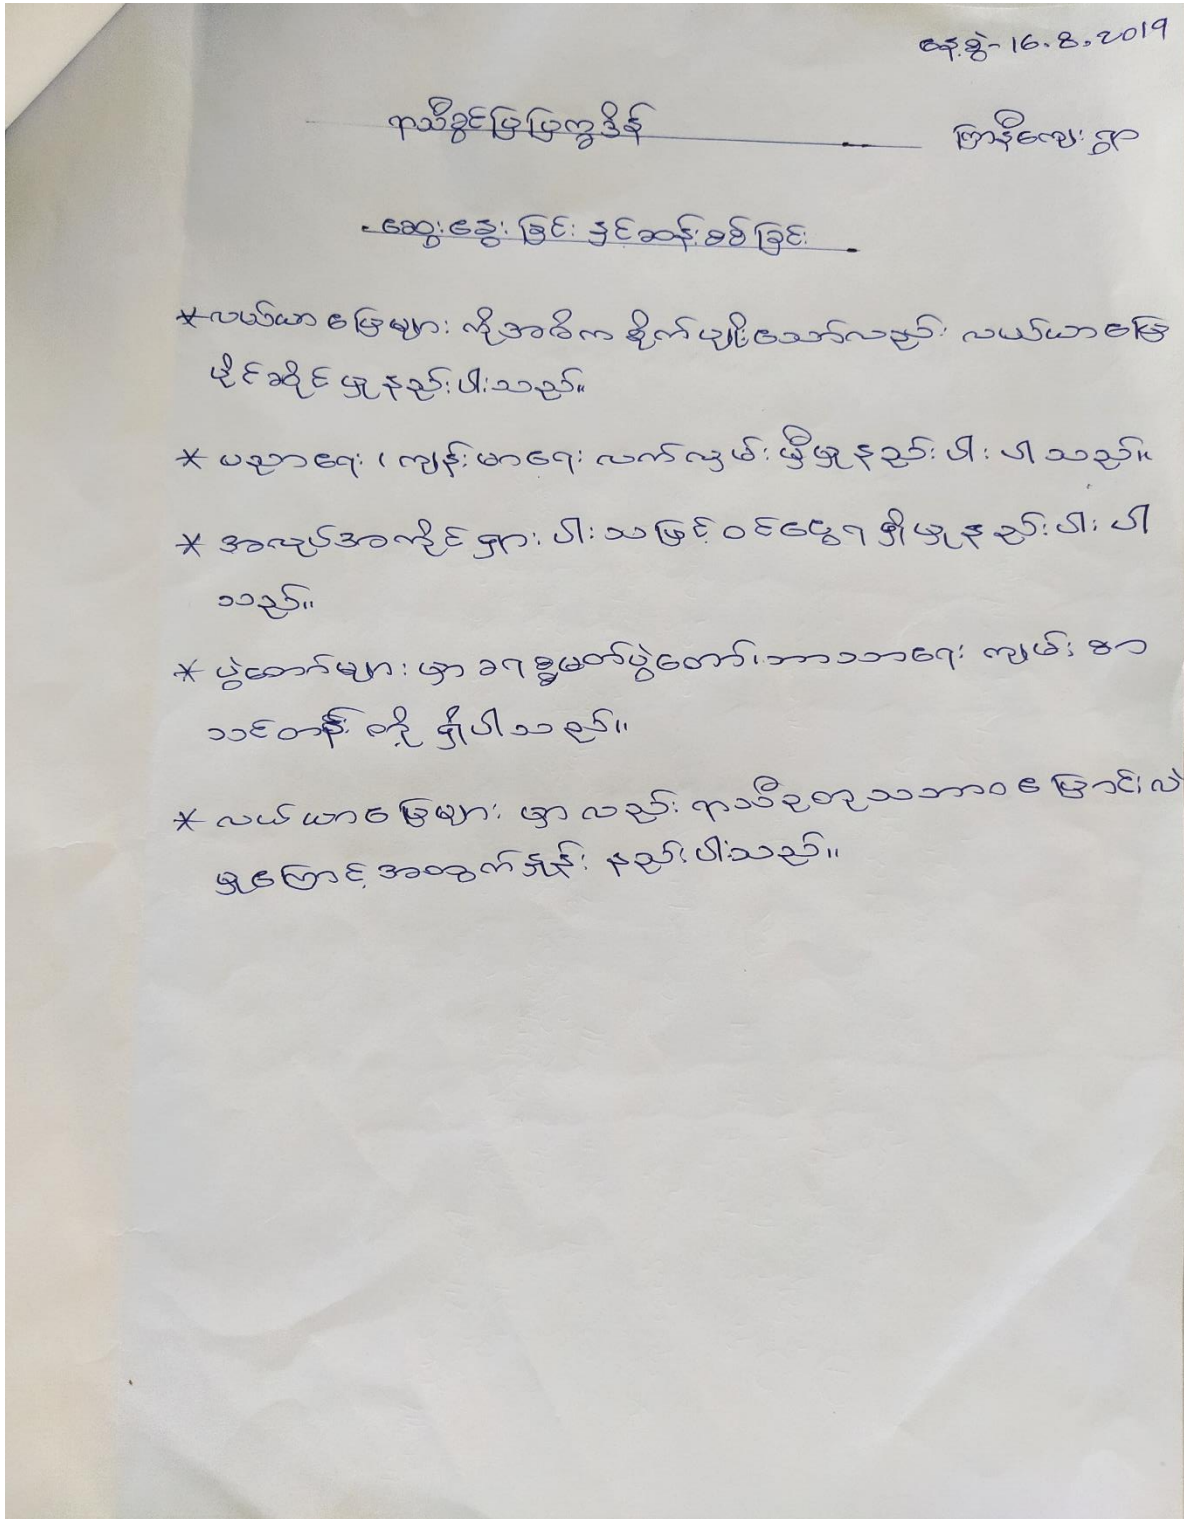 နေ့စွဲ- 16.8.2019
ရာသီခွင်ပြပြက္ခဒိန်
ကြာနီကျေးရွာ
ဆွေးနွေးခြင်းနှင့်ဆန်းစစ်ခြင်း
* လယ်ယာမြေများကိုအဓိကစိုက်ပျိုးသော်လည်း လယ်ယာမြေ
ပိုင်ဆိုင်မှုနည်းပါးသည်။
* ပညာရေး၊ ကျန်းမာရေးလက်လှမ်းမှီမှုနည်းပါးပါသည်။
* အလုပ်အကိုင်ရှားပါးသဖြင့်ဝင်ငွေရရှိမှုနည်းပါးပါ
သည်။
* ပွဲတော်များမှာခရစ္စမတ်ပွဲတော်၊ဘာသာရေးကျမ်းစာ
သင်တန်းတို့ရှိပါသည်။
* လယ်ယာမြေများမှာလည်းရာသီဥတုသဘာဝပြောင်းလဲ
မှုကြောင့်အထွက်နှုန်းနည်းပါးသည်။